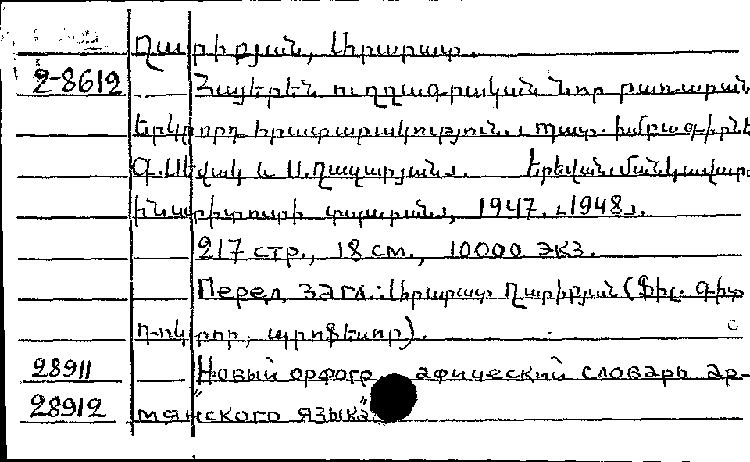 Ղարիբյան, Արարատ.
2-8612 Հայերեն ուղղագրական նոր բառարան
երկրորդ հրատարակություն. Պատ. խմբագիրնե
Գ. Սևակ և Ա. Ղազարյան. Երևան. Մանկավար.
ինստիտուտի տպարան, 1947. [1948].
217 стр., 18 см., 10000 экз.
Перед загл.: Արարատ Ղարիբյան (Ֆիլ. գիտ
դոկտոր, պրոֆեսոր).
28911 "Новый орфогр афический словарь ар-
28912 мянского языка"